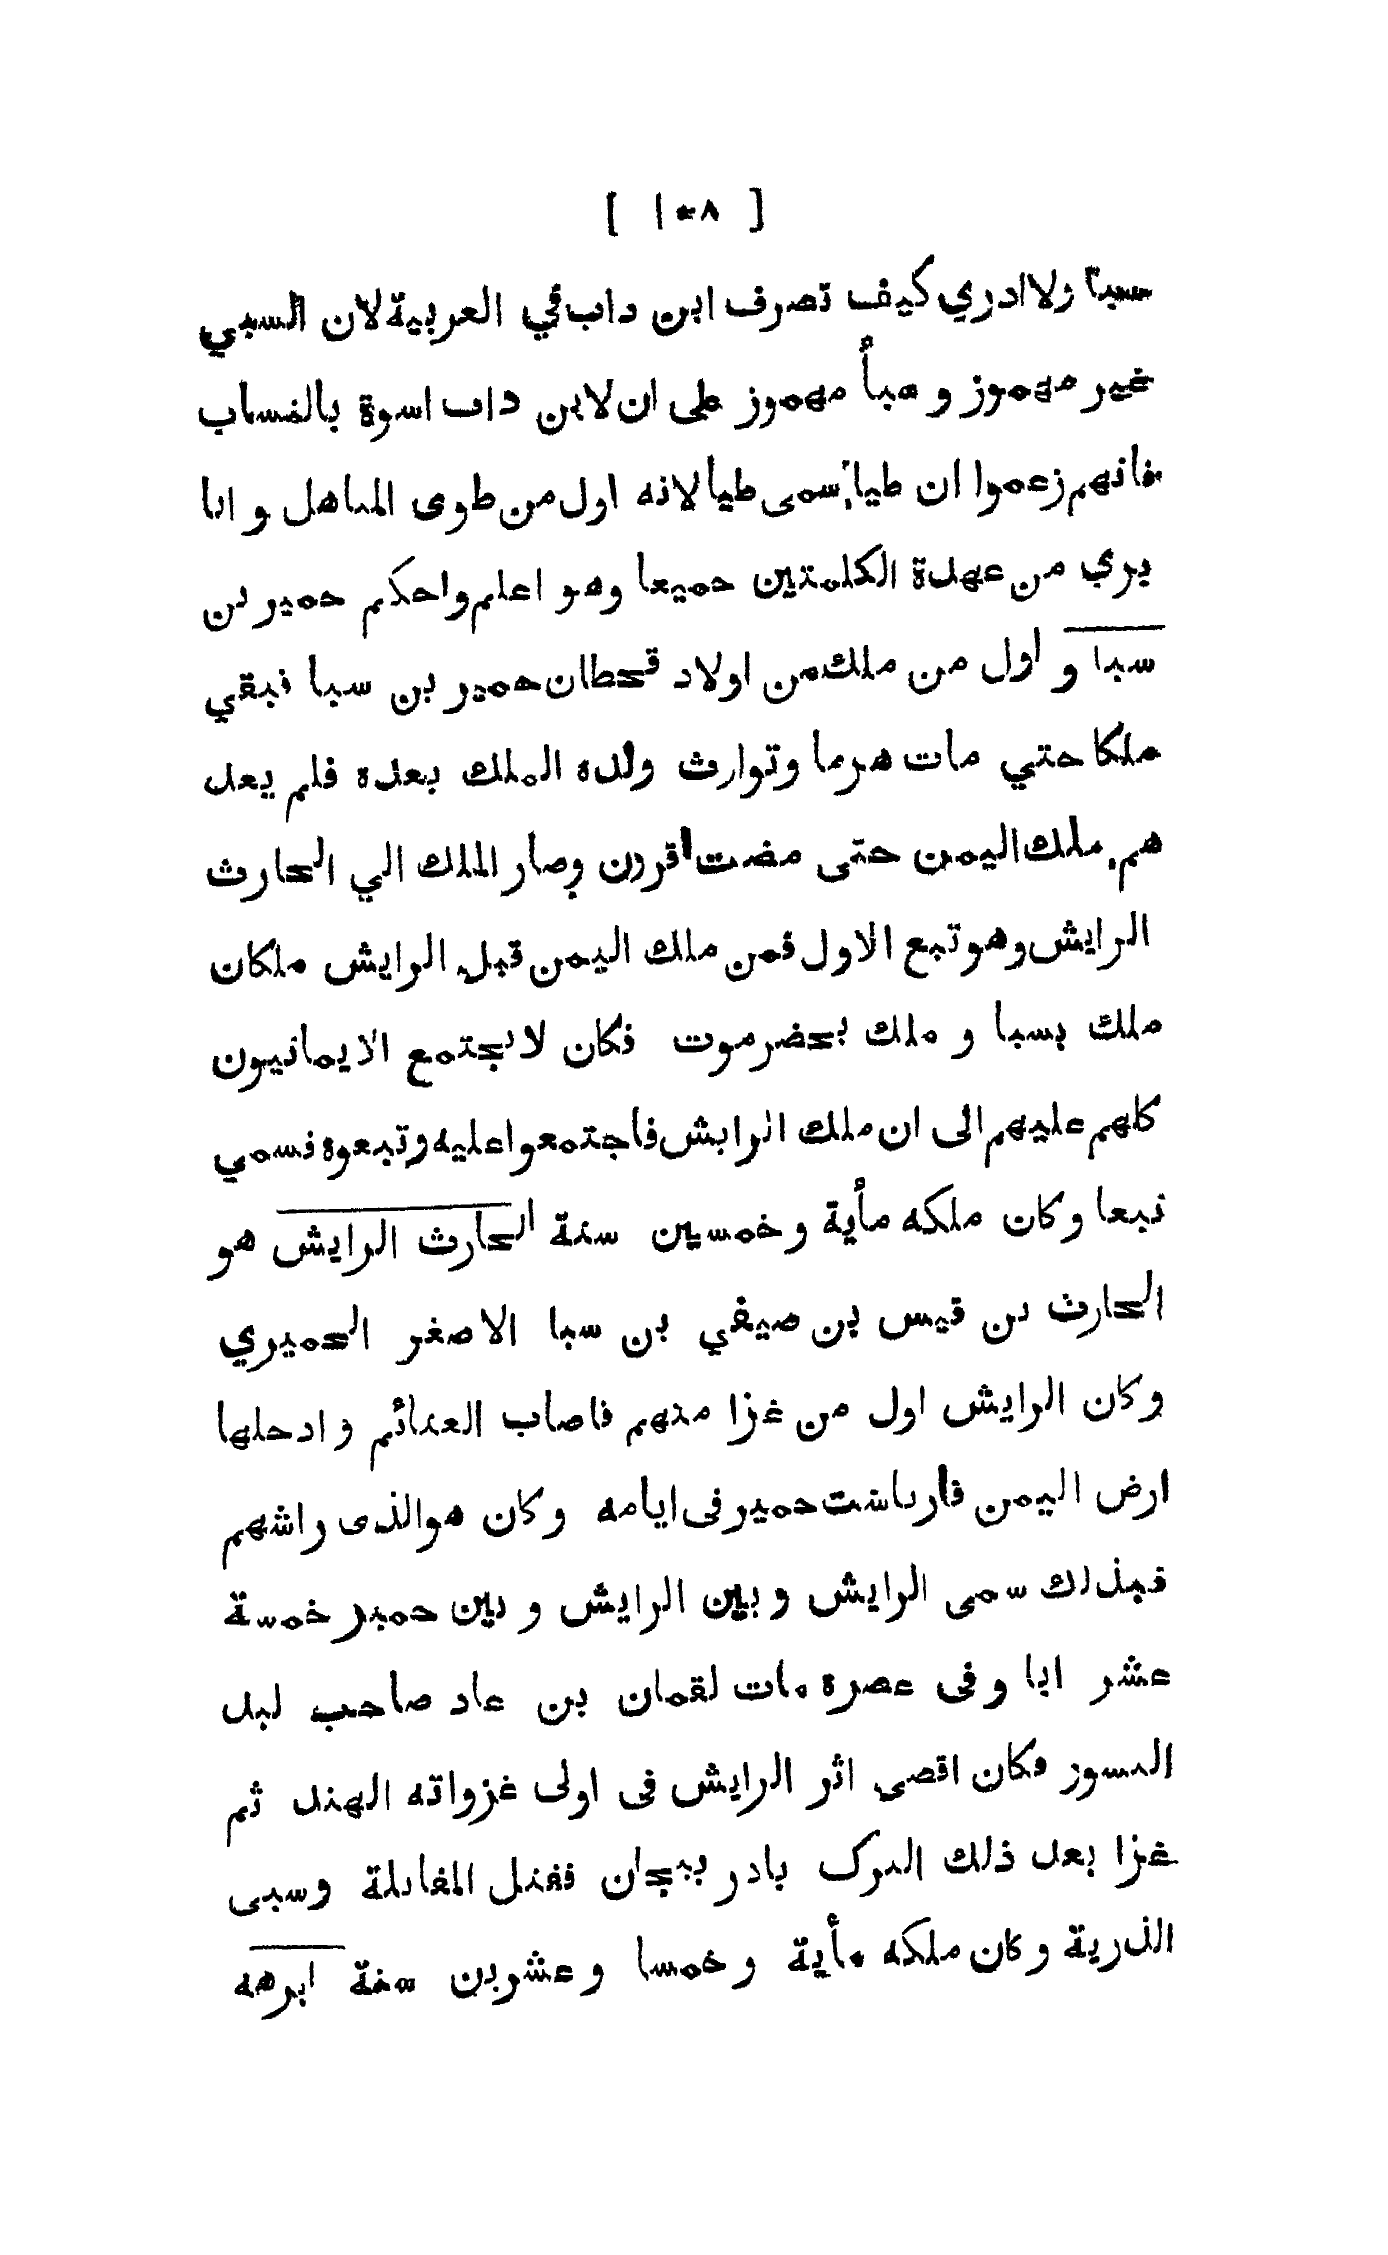 [ ١٠٨ ]
سبأ ولا ادري كيف تصرف ابن داب في العربية لان السبي
غير مهموز و سبأ مهموز على ان لابن داب اسوة بالنساب
فانهم زعموا ان طيا سمى طيا لانه اول من طوى المناهل و انا
بري من عهدة الكلمتين جميعا وهو اعلم واحكم حمير بن
سبا و اول من ملك من اولاد قحطان حمير بن سبا فبقي
ملكا حتي مات هرما وتوارث ولده الملك بعده فلم يعد
هم ملك اليمن حتى مضت قرون وصار الملك الي الحارث
الرايش وهو تبع الاول فمن ملك اليمن قبل الرايش ملكان
ملك بسبا و ملك بحضرموت فكان لا يجتمع الايمانيون
كلهم عليهم الى ان ملك الرايش فاجتمعوا عليه وتبعوه فسمي
تبعا وكان ملكه مأية وخمسين سنة الحارث الرايش هو
الحارث بن قيس بن صيفي بن سبا الاصغر الحميري
وكان الرايش اول من غزا منهم فاصاب الغنائم و ادخلها
ارض اليمن فارتاشت حمير فى ايامه وكان هو الذى راشهم
فبذلك سمى الرايش و بين الرايش و بين حمير خمسة
عشر ابا و فى عصره مات لقمان بن عاد صاحب لبد
النسور فكان اقصى اثر الرايش فى اولى غزواته الهند ثم
غزا بعد ذلك الترك باذربيجان فقتل المقاتلة وسبى
الذرية وكان ملكه مأية و خمسا و عشرين سنة ابرهه